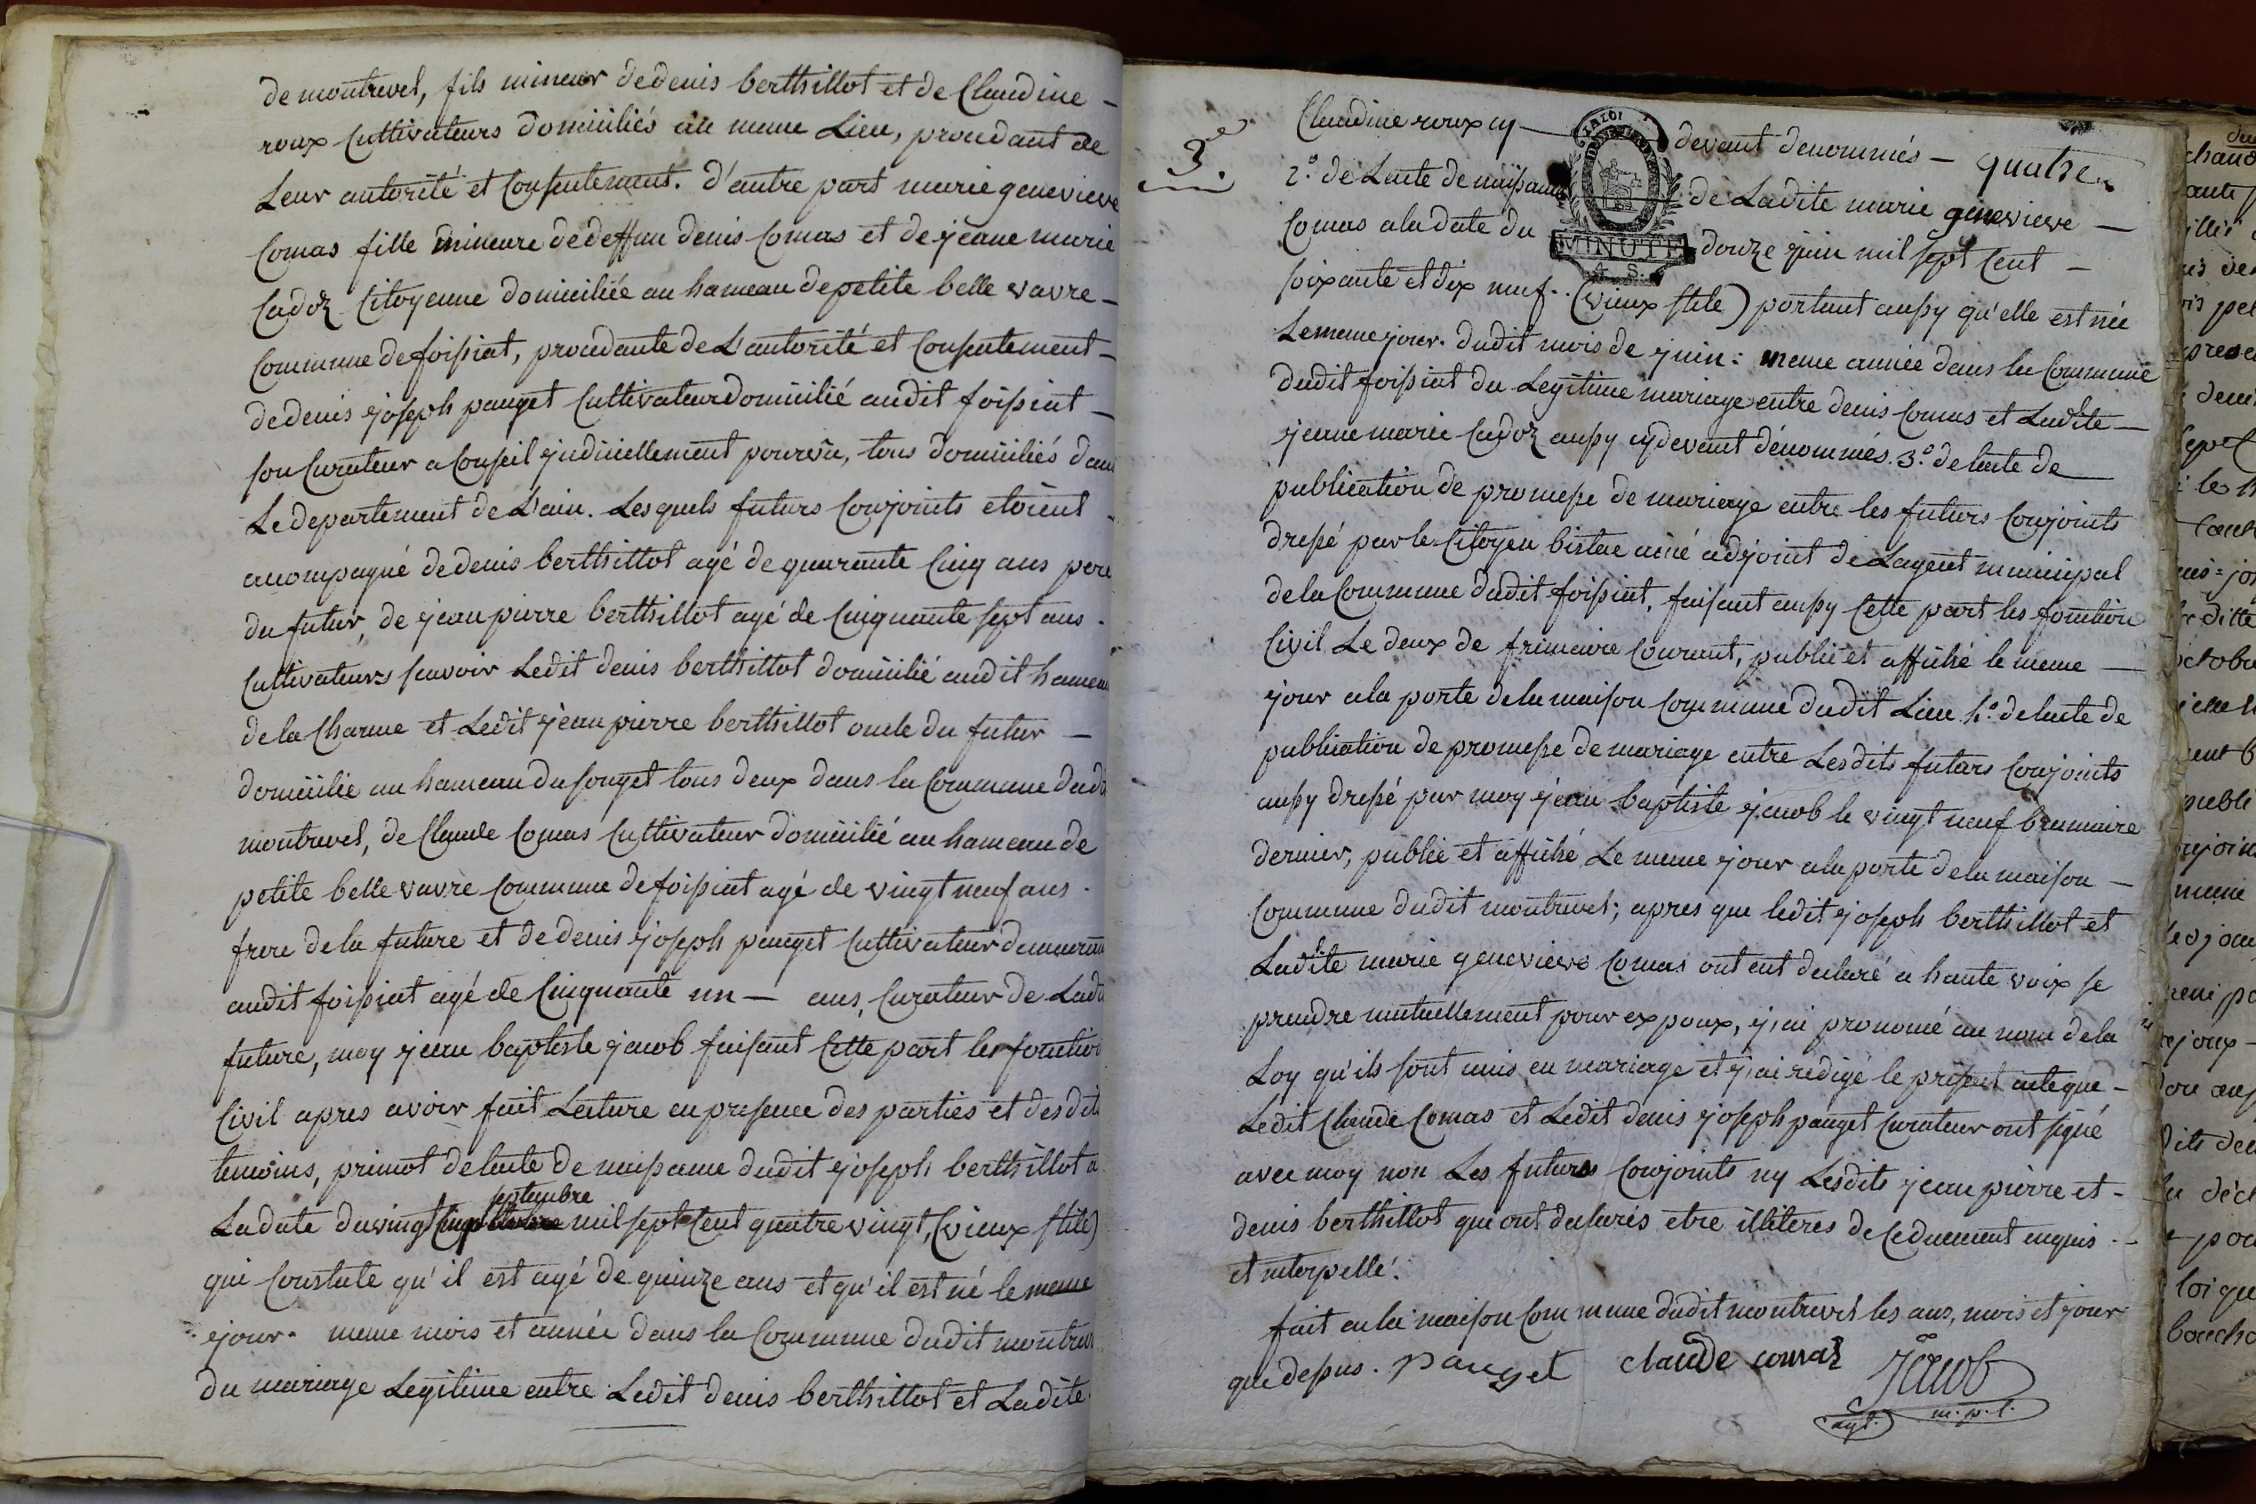 de montrevel, fils mineur de denis berthillot et de Claudine -
roux Cultivateurs domiciliés au meme Lieu, procedant de
Leur autorité et Consentement. d'autre part marie genevieve
Comas fille mineure de deffun denis Comas et de jeane marie
Cadoz Citoyenne domiciliée au hameau de petite belle vavre -
Commune de foissiat, procedante de L'autorité et Consentement -
de denis joseph pauget Cultivateur domicilié audit foissiat -
son Curateur a Conseil judiciellement pourvû, tous domiciliés dans
Le departement de L'ain. Lesquels futurs Conjoints etoient -
acompagné de denis berthillot agé de quarante Cinq ans pere
du futur, de jean pierre berthillot agé de Cinquante sept ans.
Cultivateurs scavoir Ledit denis berthillot domicilié audit hameau
de la Charme et Ledit jean pierre berthillot oncle du futur -
domicilié au hameau du souget tous deux dans la Commune dudi
montrevel, de Claude Comas Cultivateur domicilié au hameau de
petite belle vavre Commune de foissiat agé de vingt neuf ans.
frere de la future et de denis joseph pauget Cultivateur demeurant
audit foissiat agé de Cinquante un - ans, Curateur de Ladi
future, moy jean baptiste jacob faisant Cette part les fonction
Civil apres avoir fait Lecture en presence des parties et desdits
temoins, primot de lacte de naissance dudit joseph berthillot a
septembre
La date du vingt Cinq mil sept Cent quatre vingt, (vieux stile)
qui Constate qu'il est agé de quinze ans et qu'il est né le meme
jour. meme mois et année dans la Commune dudit montrevel
du mariage Legitime entre Ledit denis berthillot et Ladite
3e.
Claudine roux cy - devant denommés - quatre
2.° de Lacte de naissance de Ladite marie genevieve -
Comas a la date du douze juin mil sept Cent -
soixante et dix neuf. (vieux stile) portant aussy qu'elle est née
LA LOI
MINUTE
A. S.
Le meme jour. dudit mois de juin: meme année dans la Commune
dudit foissiat du Legitime mariage entre denis Comas et Ladite -
jeane marie Cadoz aussy cydevant dénommés. 3.° de lacte de
publication de promesse de mariage entre les futurs Conjoints
dressé par le Citoyen bistac ainé adjoint de Lagent municipal
de la Commune dudit foissiat, faisant aussy Cette part les fonction
Civil Le deux de frimaire Courant, publié et affiché le meme -
jour a la porte de la maison Commune dudit Lieu 4.° de lacte de
publication de promesse de mariage entre Lesdits futurs Conjoints
aussy dressé par moy jean baptiste jacob le vingt neuf brumaire
dernier, publié et affiché Le meme jour a la porte de la maison -
Commune dudit montrevel; apres que ledit joseph berthillot et
Ladite marie genevieve Comas ont eut declaré a haute voix se
prendre mutuellement pour expoux, j'ai prononcé au nom de la
Loy qu'ils sont unis en mariage et j'ai redigé le present acte que -
Ledit Claude Comas et Ledit denis joseph pauget Curateur ont signé
avec moy non Les futurs Conjoints ny Lesdits jean pierre et -
denis berthillot qui ont declarés etre illiteres de Ce duement enquis -
et interpellé.
fait en la maison Commune dudit montrevel les ans, mois et jour
que dessus. Pauget claude comas Jacob
agt. m. p. l.